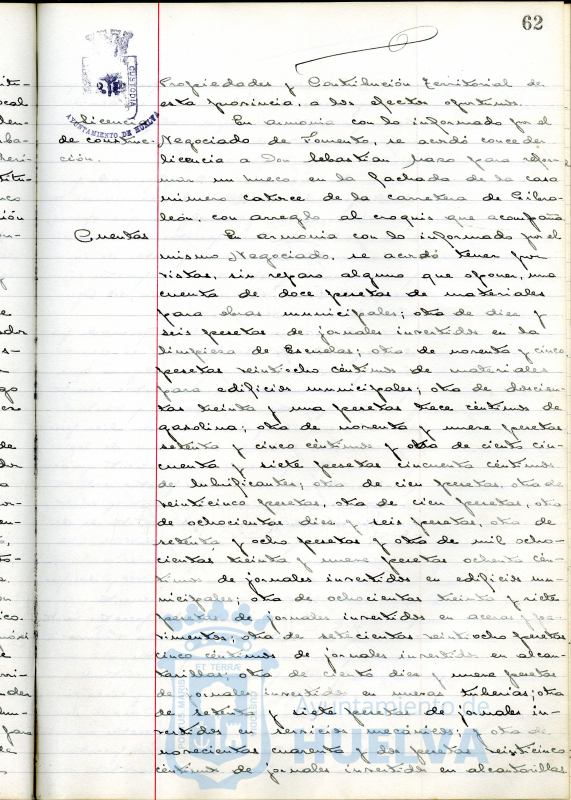 62
Propiedades y Contribución territorial de
esta provincia, a los efectos oportunos.
Licencia
de construc-
ción.
En armonía con lo informado por el
Negociado de Fomento, se acordó conceder
licencia a Don Sebastian para refor-
mar un hueco en la fachada de la casa
número catorce de la carretera de Gibra-
león, con arreglo al croquis que acompaña.
Cuentas
En armonía con lo informado por el
mismo Negociado, se acordó tener por
vistas, sin reparo alguno que oponer, una
cuenta de doce pesetas de materiales
para obras municipales; otra de diez y
seis pesetas de jornales invertidos en la
limpieza de Escuelas; otra de noventa y cinco
pesetas veintiocho céntimos de materiales
para edificios municipales; otra de doscien-
tas treinta y una pesetas trece céntimos de
gasolina; otra de noventa y nueve pesetas
setenta y cinco céntimos y otra de ciento cin-
cuenta y siete pesetas cincuenta céntimos
de lubrificantes; otra de cien pesetas, otra de
veinticinco pesetas, otra de cien pesetas, otra
de ochocientas diez y seis pesetas, otra de
setenta y ocho pesetas y otra de mil ocho-
cientas treinta y nueve pesetas ochenta cén-
timos de jornales invertidos en edificios mu-
nicipales; otra de ochocientas treinta y siete
pesetas de jornales invertidos en aceras y pa-
vimentos; otra de setecientas veintiocho pesetas
cinco céntimos de jornales invertidos en alcan-
tarillas; otra de ciento diez y nueve pesetas
de jornales invertidos en nuevas tuberías; otra
de setenta y siete pesetas de jornales in-
vertidos en servicios mecánicos, y otra de
novecientas cuarenta y dos pesetas veinticinco
céntimos de jornales invertidos en alcantarillas
CUSTODIA
AYUNTAMIENTO DE HUELVA
Ayuntamiento de
HUELVA